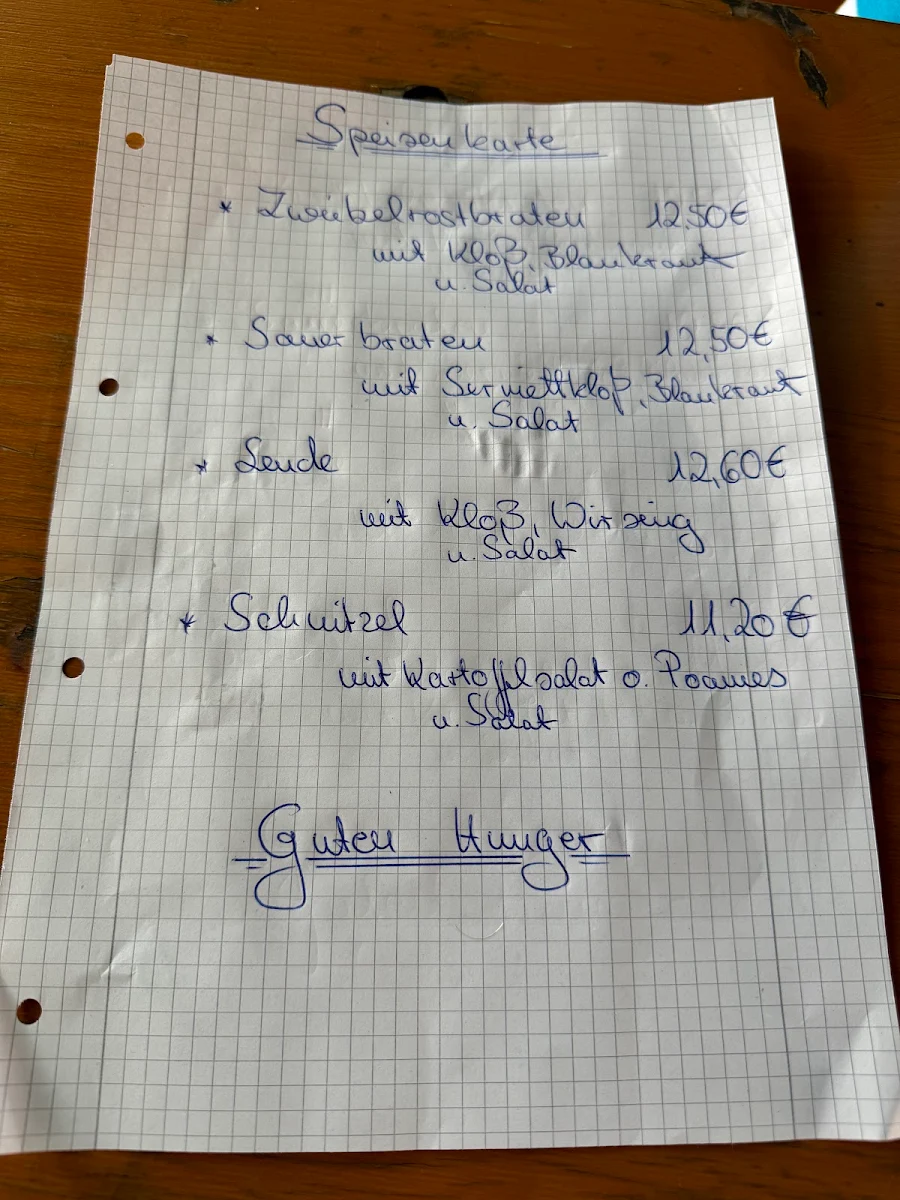 Speisenkarte
* Zwiebelrostbraten 12,50€
mit Kloß, Blaukraut
u. Salat
* Sauerbraten 12,50€
mit Serviettkloß, Blaukraut
u. Salat
* Lende 12,60€
mit Kloß, Wirsing
u. Salat
* Schnitzel 11,20€
mit Kartofflsalat o. Poames
u. Salat
Guten Hunger